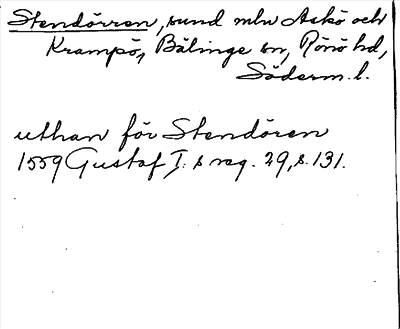 Stendörren, sund mln Askö och
Krampö, Bälinge sn, Rönö hd,
Söderm. l.
uthan för Stendören
1559 Gustaf I:s reg. 29, s. 131.